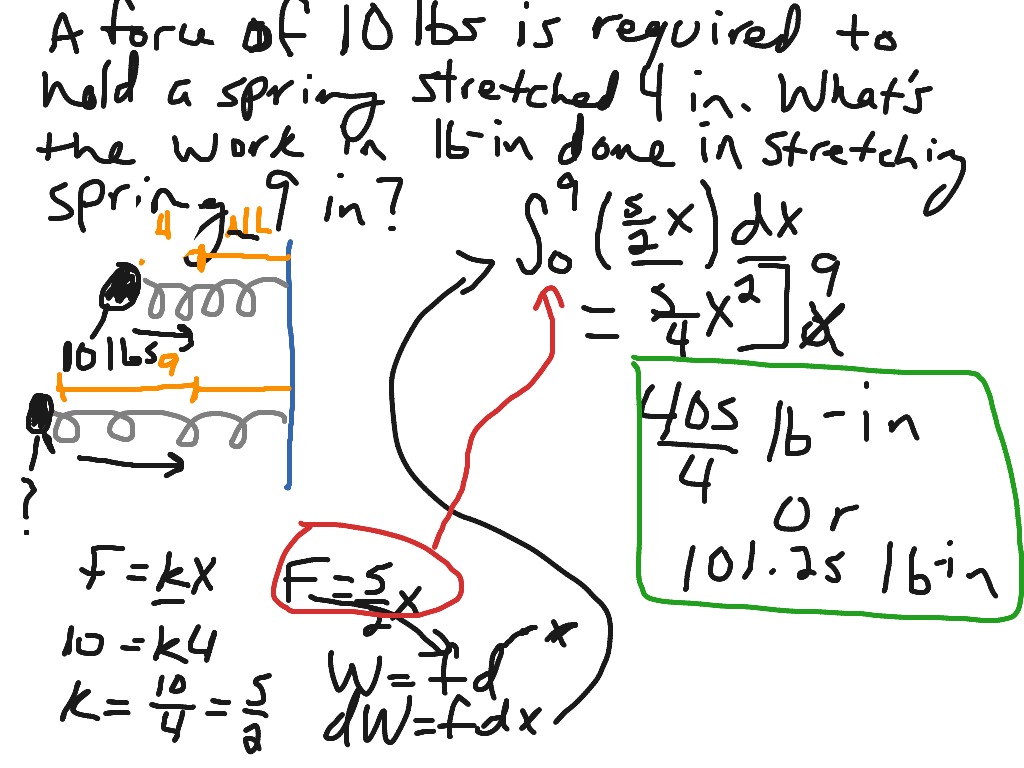 A force of 10 lbs is required to
hold a spring stretched 4 in. What's
the work in lb-in done in stretching
spring 9 in?
4
∫₀⁹ (5/2 x) dx
= 5/4 x²]⁹
10 lbs
9
?
405/4 lb-in
or
101.25 lb-in
F = kx
F = 5/2 x
10 = k4
K = 10/4 = 5/2
W = fd
x
dW = fdx